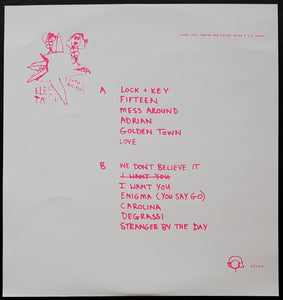 A
LOCK + KEY
FIFTEEN
MESS AROUND
ADRIAN
GOLDEN TOWN
LOVE
B
WE DON'T BELIEVE IT
I WANT YOU
I WANT YOU
ENIGMA (YOU SAY GO)
CAROLINA
DEGRASSI
STRANGER BY THE DAY